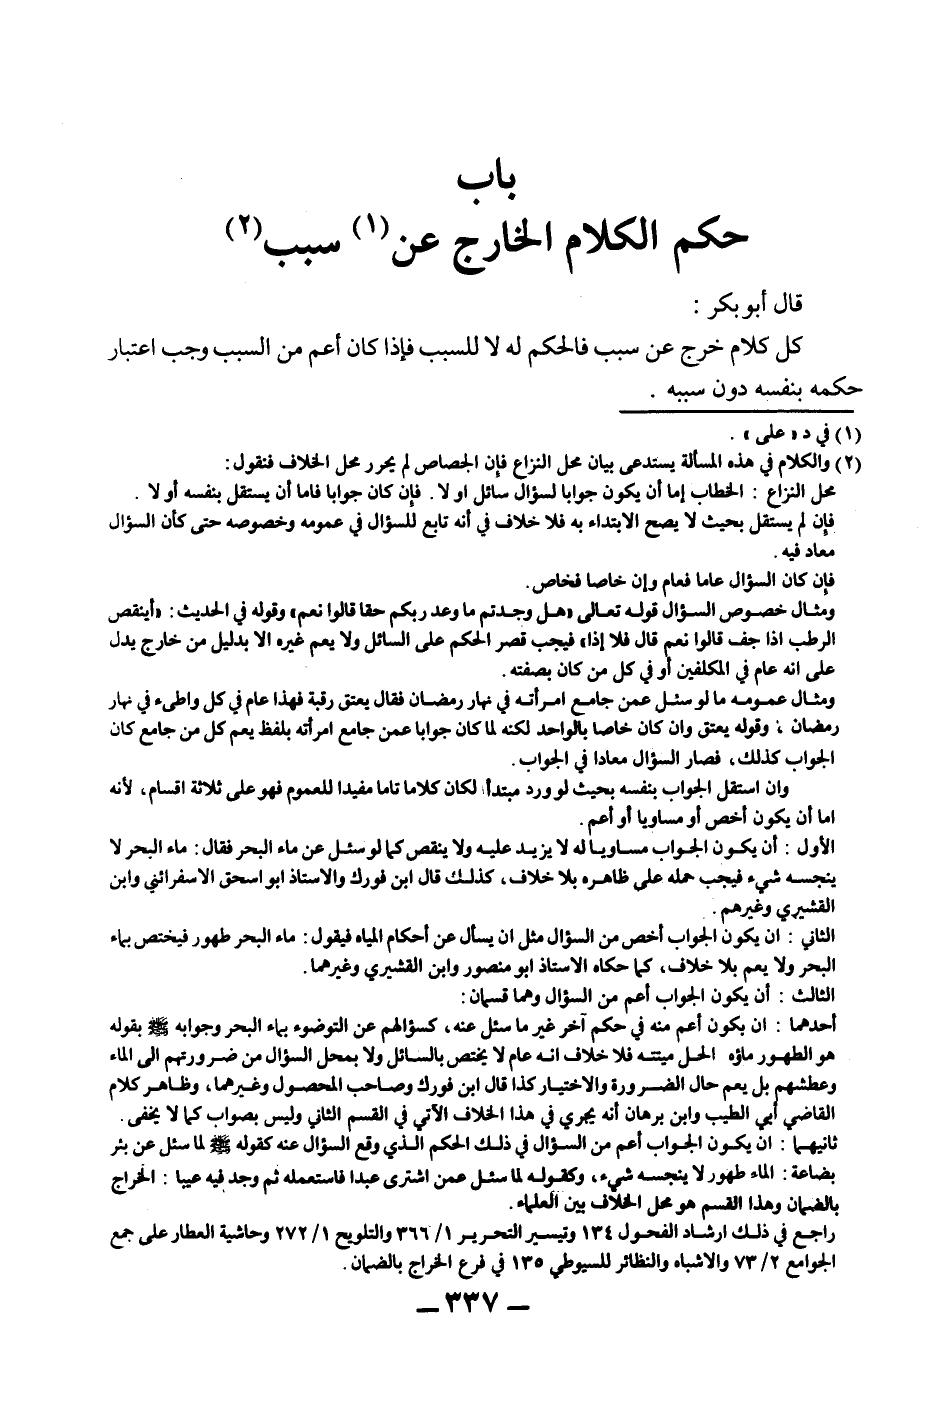 باب
حكم الكلام الخارج عن(١) سبب(٢)
قال أبو بكر :
كل كلام خرج عن سبب فالحكم له لا للسبب فإذا كان أعم من السبب وجب اعتبار
حكمه بنفسه دون سببه .
(١) في د «على» .
(٢) والكلام في هذه المسألة يستدعى بيان محل النزاع فإن الجصاص لم يحرر محل الخلاف فنقول:
محل النزاع : الخطاب إما أن يكون جوابا لسؤال سائل او لا. فإن كان جوابا فاما أن يستقل بنفسه أو لا .
فإن لم يستقل بحيث لا يصح الابتداء به فلا خلاف في أنه تابع للسؤال في عمومه وخصوصه حتى كأن السؤال
معاد فيه .
فإن كان السؤال عاما فعام وإن خاصا فخاص.
ومثال خصوص السؤال قوله تعالى «هل وجدتم ما وعد ربكم حقا قالوا نعم» وقوله في الحديث: «أينقص
الرطب اذا جف قالوا نعم قال فلا إذا» فيجب قصر الحكم على السائل ولا يعم غيره الا بدليل من خارج يدل
على انه عام في المكلفين أو في كل من كان بصفته.
ومثال عمومه ما لو سئل عمن جامع امرأته في نهار رمضان فقال يعتق رقبة فهذا عام في كل واطىء في نهار
رمضان ، وقوله يعتق وان كان خاصا بالواحد لكنه لما كان جوابا عمن جامع امرأته بلفظ يعم كل من جامع كان
الجواب كذلك، فصار السؤال معادا في الجواب.
وان استقل الجواب بنفسه بحيث لو ورد مبتدأ لكان كلاما تاما مفيدا للعموم فهو على ثلاثة اقسام، لأنه
اما أن يكون أخص أو مساويا أو أعم.
الأول : أن يكون الجواب مساويا له لا يزيد عليه ولا ينقص كما لو سئل عن ماء البحر فقال: ماء البحر لا
ينجسه شيء فيجب حمله على ظاهره بلا خلاف، كذلك قال ابن فورك والاستاذ ابو اسحق الاسفرائني وابن
القشيري وغيرهم.
الثاني : ان يكون الجواب أخص من السؤال مثل ان يسأل عن أحكام المياه فيقول: ماء البحر طهور فيختص بماء
البحر ولا يعم بلا خلاف، كما حكاه الاستاذ ابو منصور وابن القشيري وغيرهما.
الثالث : أن يكون الجواب أعم من السؤال وهما قسمان:
أحدهما : ان يكون أعم منه في حكم آخر غير ما سئل عنه، كسؤالهم عن التوضوء بماء البحر وجوابه ﷺ بقوله
هو الطهور ماؤه الحل ميتته فلا خلاف انه عام لا يختص بالسائل ولا بمحل السؤال من ضرورتهم الى الماء
وعطشهم بل يعم حال الضرورة والاختيار كذا قال ابن فورك وصاحب المحصول وغيرهما، وظاهر كلام
القاضي أبي الطيب وابن برهان أنه يجري في هذا الخلاف الآتي في القسم الثاني وليس بصواب كما لا يخفى.
ثانيهما : ان يكون الجواب أعم من السؤال في ذلك الحكم الذي وقع السؤال عنه كقوله ﷺ لما سئل عن بئر
بضاعة : الماء طهور لا ينجسه شيء، وكقوله لما سئل عمن اشترى عبدا فاستعمله ثم وجد فيه عيبا : الخراج
بالضمان وهذا القسم هو محل الخلاف بين العلماء.
راجع في ذلك ارشاد الفحول ١٣٤ وتيسر التحرير ١/ ٣٦٦ والتلويح ١/ ٢٧٢ وحاشية العطار على جمع
الجوامع ٢/ ٧٣ والاشباه والنظائر للسيوطي ١٣٥ في فرع الخراج بالضمان.
ــ ٣٣٧ ــ